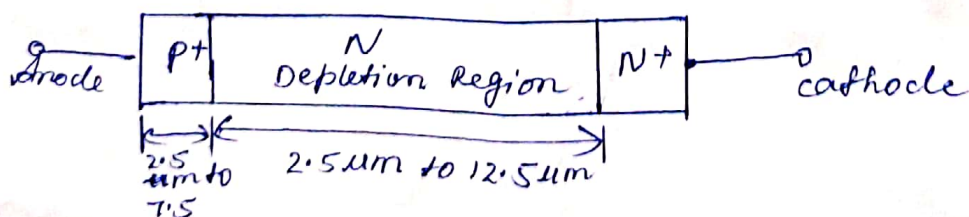 Anode
P+
N
Depletion Region
N+
cathode
2.5
μm to
7.5
2.5 μm to 12.5 μm